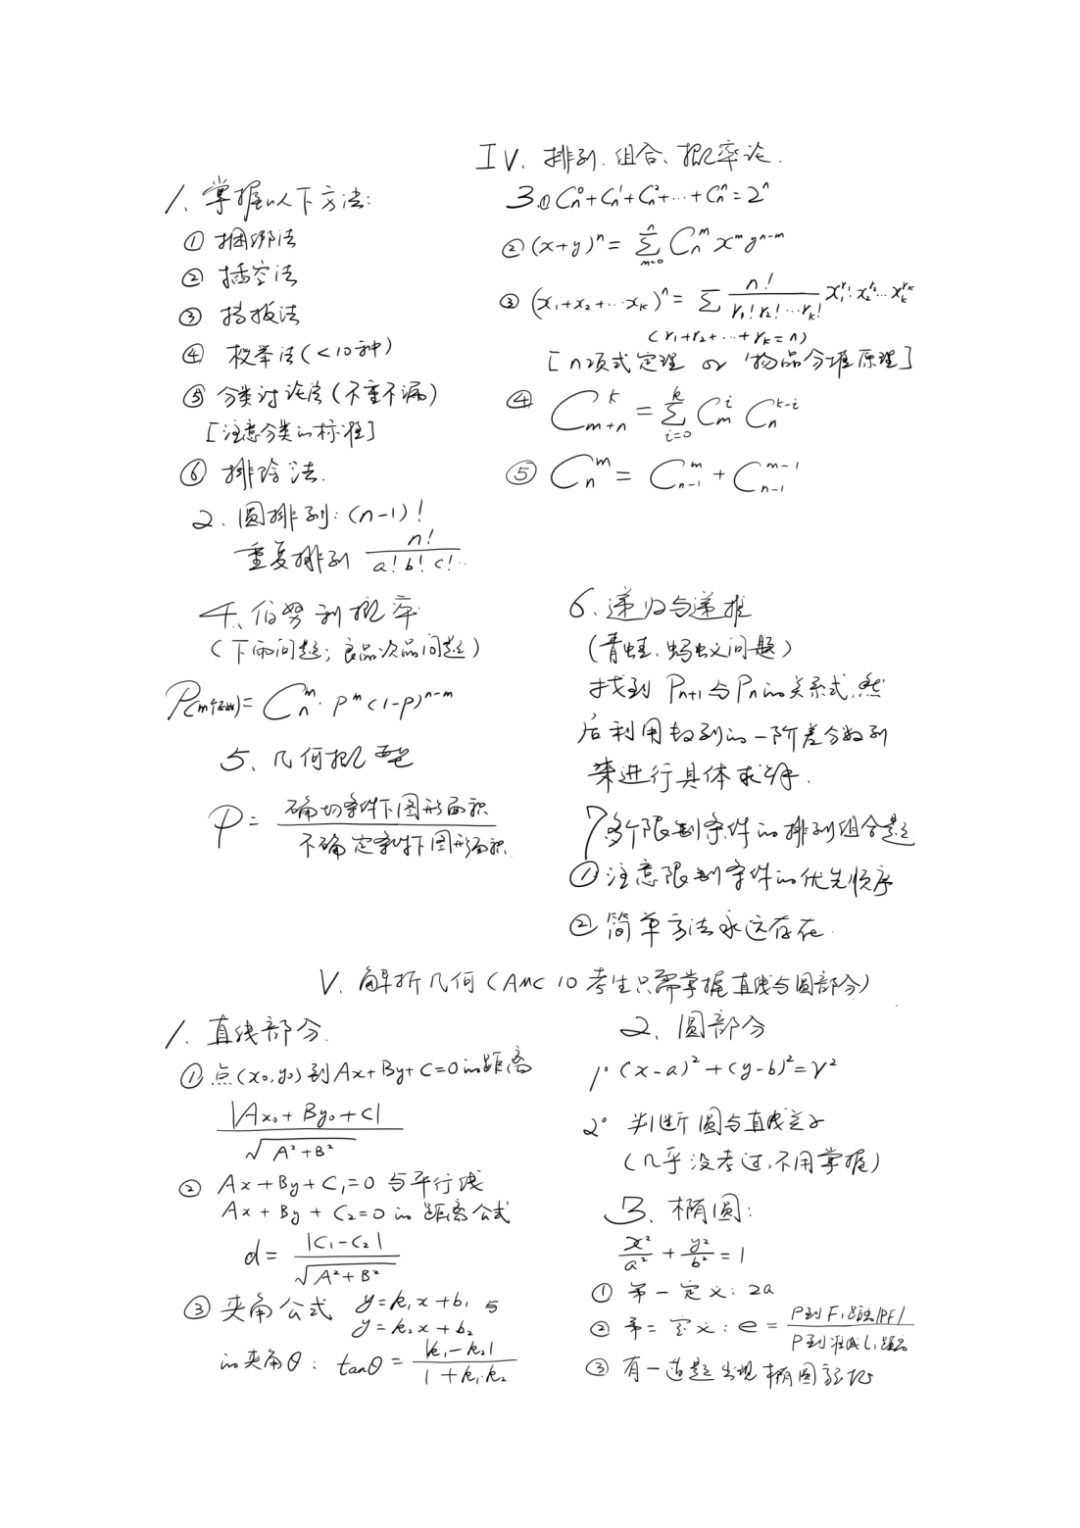 IV. 排列、组合、概率论.
1. 掌握以下方法:
① 捆绑法
② 插空法
③ 挡板法
④ 枚举法(<10种)
⑤ 分类讨论法(不重不漏)
[注意分类的标准]
⑥ 排除法.
2. 圆排列: (n-1)!
重复排列 n!/(a! b! c!…)
3.① Cn^0+Cn^1+Cn^2+…+Cn^n=2^n
② (x+y)^n = Σ_{m=0}^{n} C_n^m x^m y^{n-m}
③ (x₁+x₂+…x_k)^n = Σ n!/(r₁! r₂! … r_k!) x₁^{r₁}·x₂^{r₂}…x_k^{r_k}
(r₁+r₂+…+r_k=n)
[n项式定理 or 物品分堆原理]
④ C_{m+n}^k = Σ_{i=0}^{k} C_m^i C_n^{k-i}
⑤ C_n^m = C_{n-1}^m + C_{n-1}^{m-1}
4. 伯努利概率
(下雨问题; 良品次品问题)
P(m) = C_n^m · p^m (1-p)^{n-m}
5、几何概型
P = 确切条件下图形面积/不确定条件下图形面积
6、递归与递推
(青蛙、蚂蚁问题)
找到 P_{n+1} 与 P_n 的关系式,然
后利用数列的一阶差分数列
来进行具体求解.
7 多个限制条件的排列组合题
① 注意限制条件的优先顺序
② 简单方法永远存在.
V. 解析几何(AMC 10 考生只需掌握直线与圆部分)
1. 直线部分.
① 点(x₀,y₀)到Ax+By+C=0的距离
|Ax₀+By₀+C|/√(A²+B²)
② Ax+By+C₁=0 与平行线
Ax+By+C₂=0 的 距离公式
d = |C₁-C₂|/√(A²+B²)
③ 夹角公式 y=k₁x+b₁ 与
y=k₂x+b₂
的夹角θ: tanθ = |k₁-k₂|/(1+k₁·k₂)
2. 圆部分
1° (x-a)²+(y-b)²=r²
2° 判断圆与直线关系
(几乎没考过,不用掌握)
3、椭圆:
x²/a² + y²/b² = 1
① 第一定义: 2a
② 第二定义: e = P到F₁距离|PF|/P到准线l₁距离
③ 有一道题出现椭圆